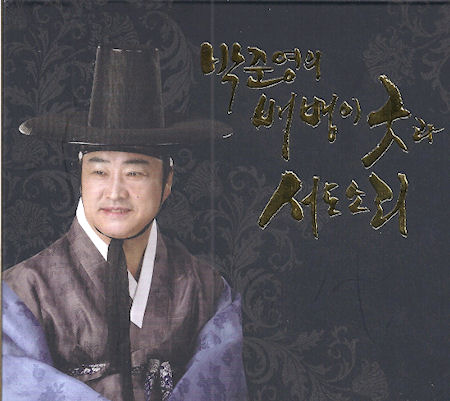 박준영의
배뱅이 굿과
서도소리